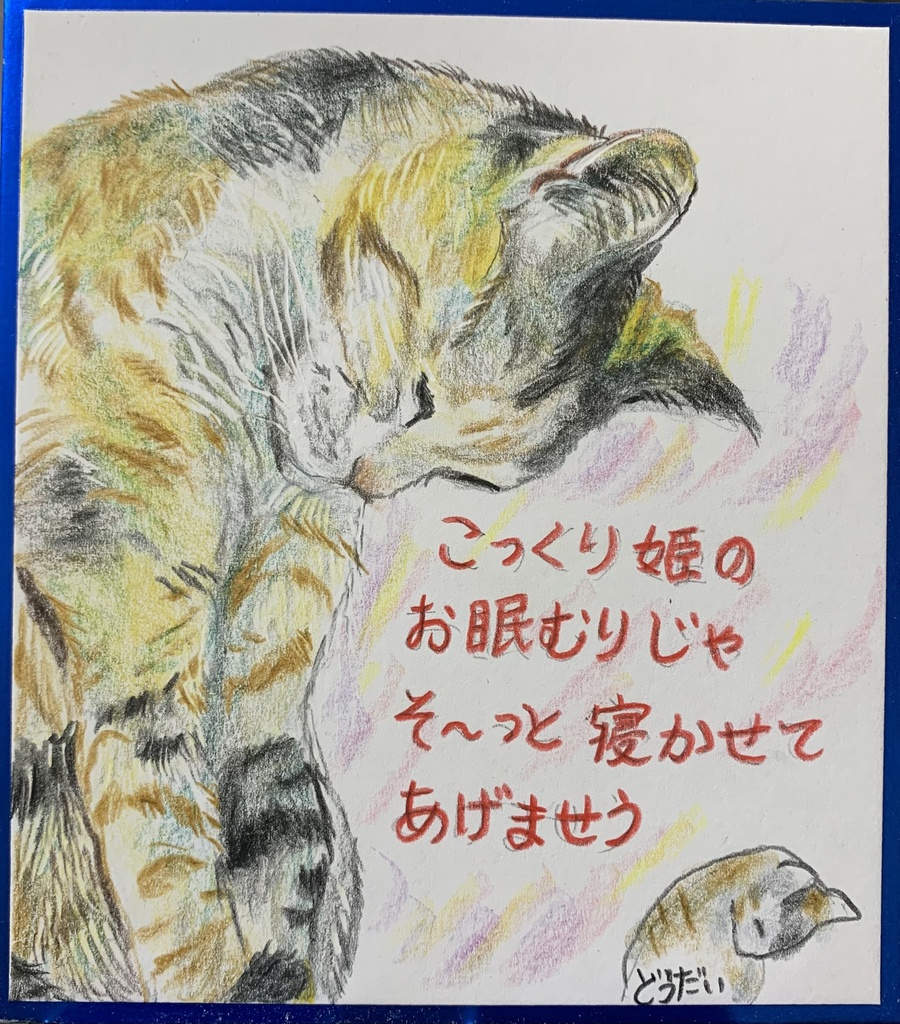 こっくり姫の
お眠むりじゃ
そ〜っと寝かせて
あげませう
どうだい